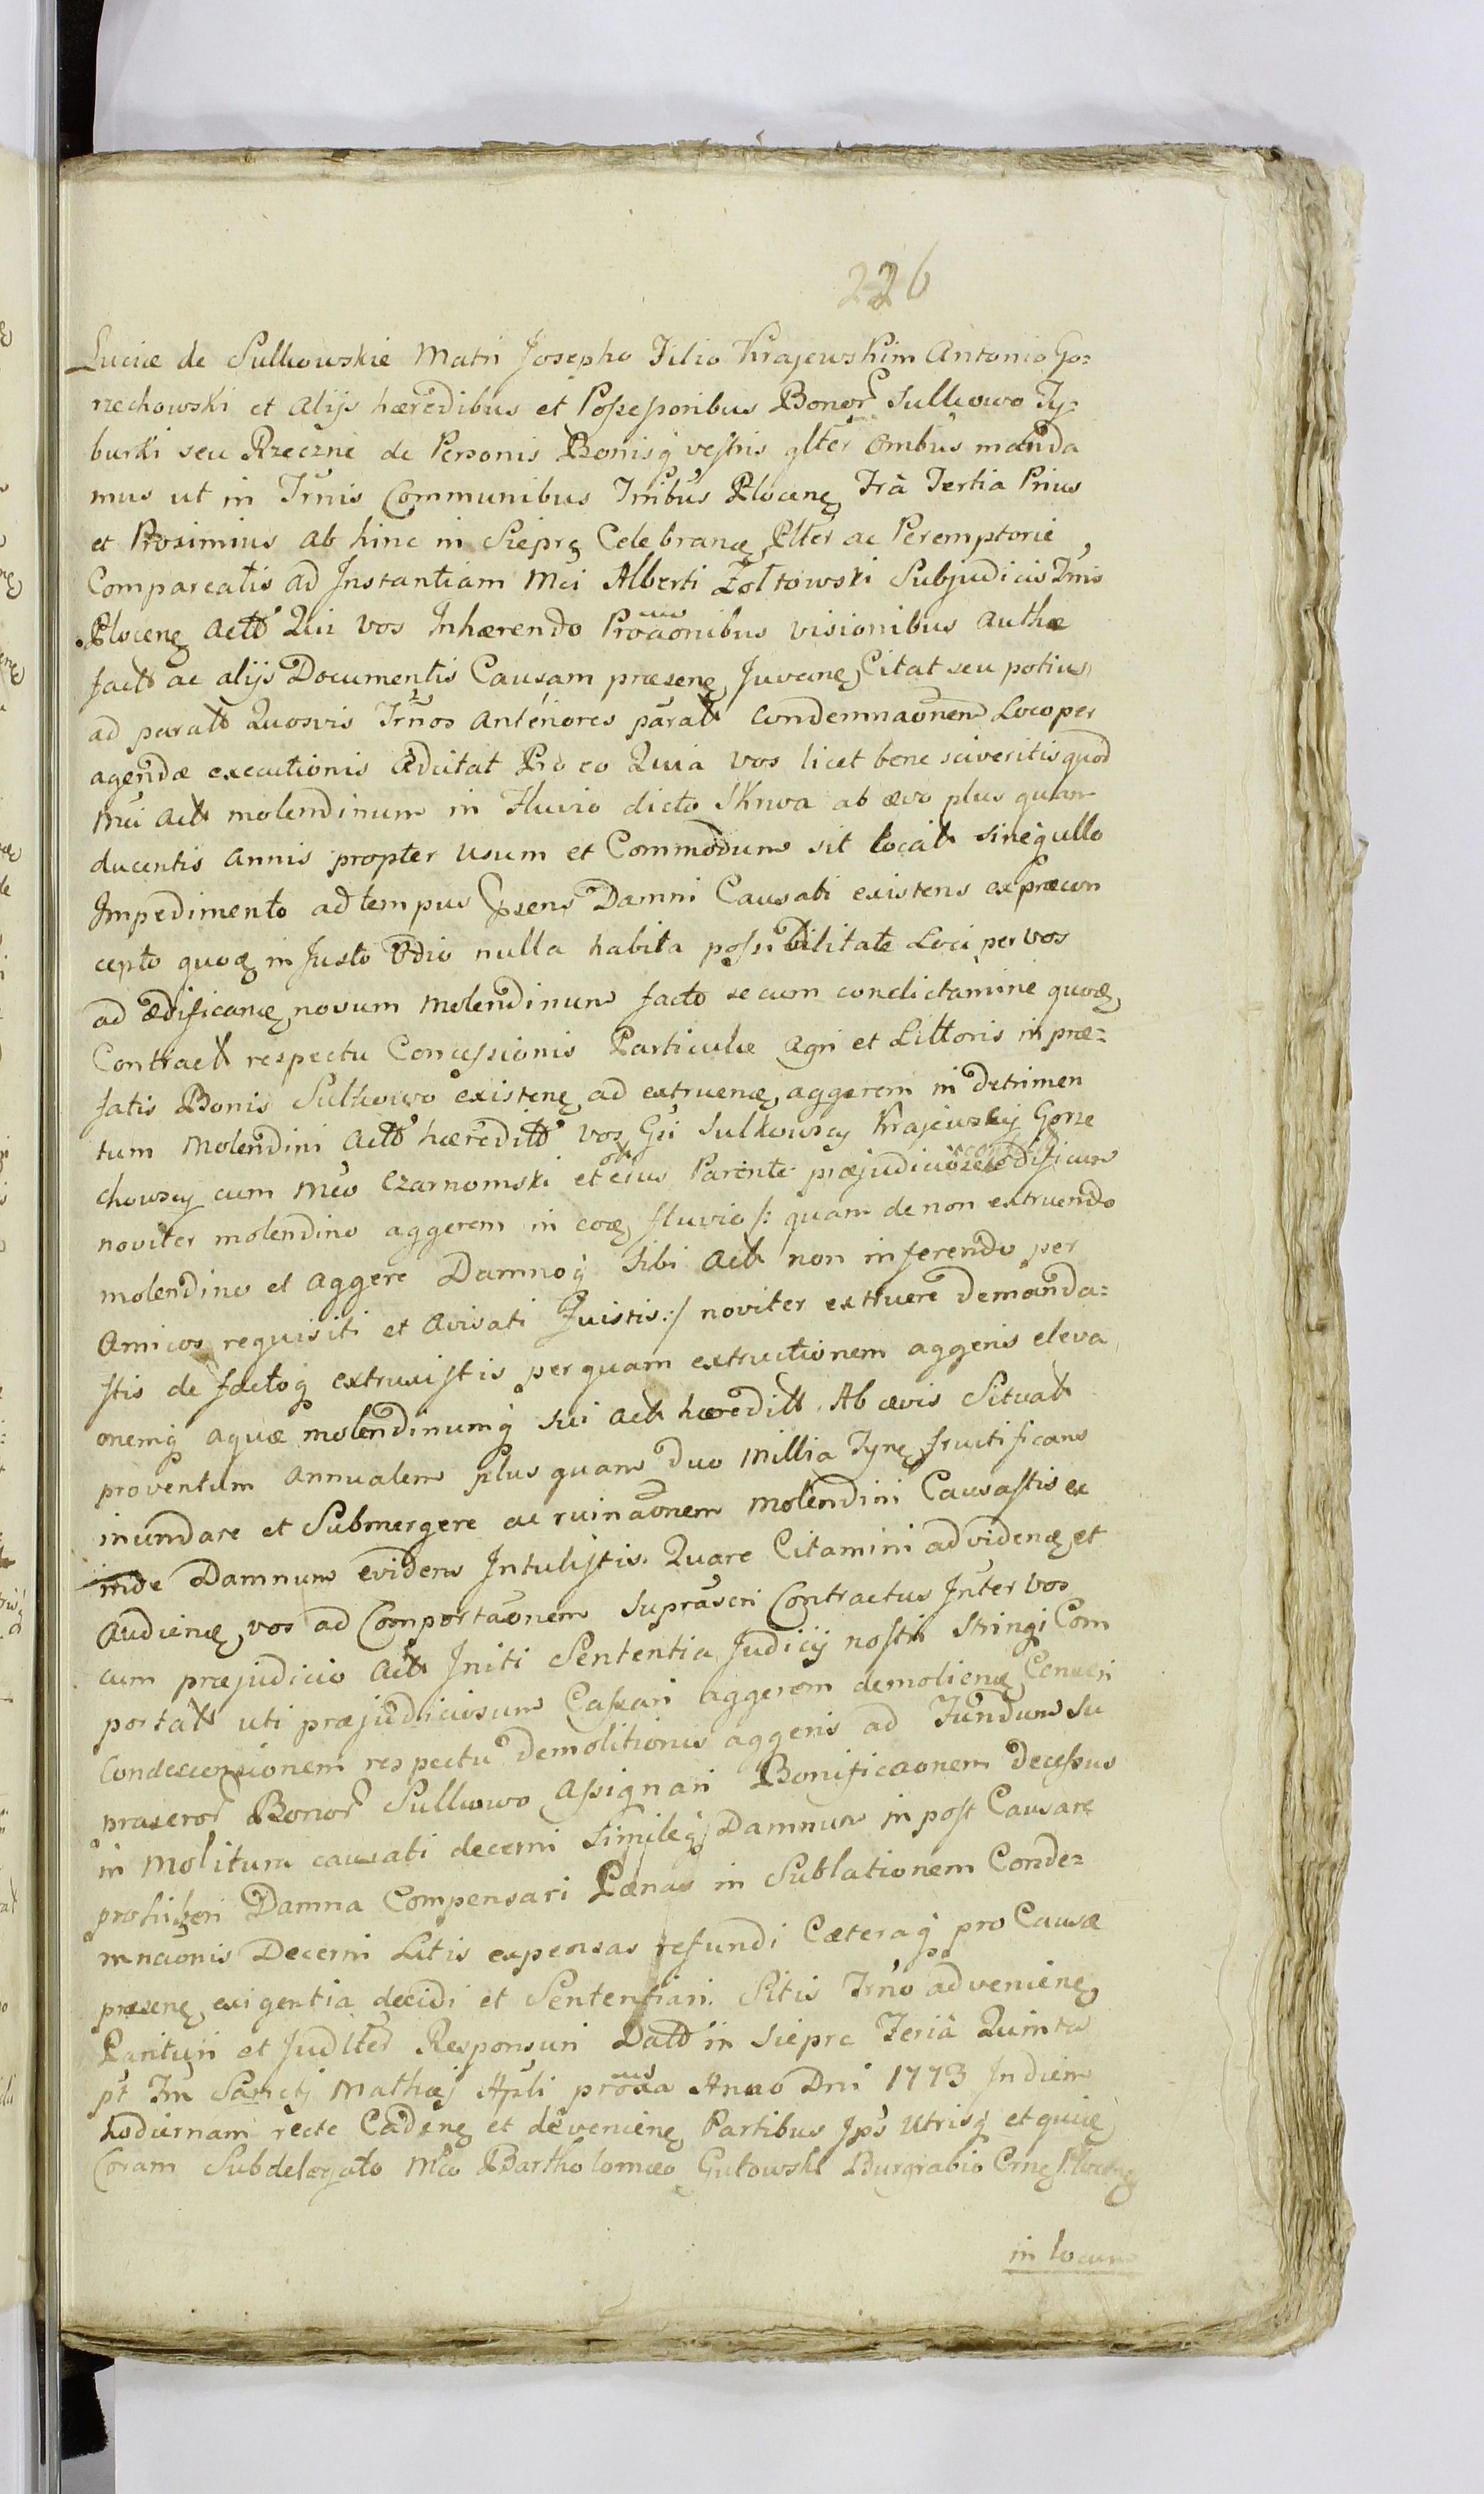 226
Luciæ de Sulkowskie Matri Josepho Filio Krajewskim Antonio Go=
rzechowski et alijs hæredibus et Possessoribus Bonor Sulkowo Ty=
burki seu Rzeczne de Personis Bonisq vestris glter ombus manda
mus ut in Trnis Communibus Tribus Plocen Fra Tertia Prius
et Proximius ab hinc in Siepre Celebran Plter ac Peremptorie
Compareatis ad Instantiam Mci Alberti Żołtowski Subjudicis Tris
Plocen Actt Qui vos Inhærendo Proaonibus visionibus authæ
fact ac alijs Documentis Causam præsen Juvan Citat seu potius
ad parat Quosvis Trnos Anteriores parat Condemnaonem Loco per
agendæ executionis Adcitat Pro eo Quia vos licet bene sciveritis quod
Mci Act molendinum in Fluvio dicto Skrwa ab ævo plus quam
ducentis annis propter usum et Commodum sit locat sineq ullo
Impedimento ad tempus psens Damni Causati existens ex præcon
cepto quoq in Justo Odio nulla habita possibilitate Loci per vos
ad ædifican novum Molendinum facto secum condictamine quoq
Contract respectu Concessionis Particulæ agri et Littoris in præ=
fatis Bonis Sulkowo existen ad extruen aggerem in detrimen
tum Molendini Actt hæreditt vos Gsi Sulkowscy Krajewscy Gorze
chowscy cum Mco Czarnomski et ejus Parente præjudiciose ædificium
noviter molendino aggerem in eoq fluvio /: quam de non extruendo
molendino et aggere Damnoq sibi Act non inferendo per
Amicos requisiti et avisati Fuistis :/ noviter extruere demanda=
stis de factoq extruxistis per quam extructionem aggeris eleva
onemq aquæ molendinumq sui act hæreditt Ab ævis Situat
proventum annualem plus quam duo Millia Tyn fructificans
inundare et Submergere ac ruinaonem Molendini Causastis ex
inde Damnum evidens Intulistis. Quare Citamini ad viden et
audien vos ad Comportaonem suprascri Contractus Inter vos
cum præjudicio Act Initi Sententia Judicij nostri Stringi Com
portat uti præjudiciosum Cassari aggerem demolien Censeri
Condescensionem respectu demolitionis aggeris ad Fundum su
prascror Bonor Sulkowo assignari Bonificaonem decessus
in Molitura causati decerni Simileq Damnum in post Causare
prohiberi Damna Compensari Pænas in Sublationem Conde=
mnaonis Decerni Litis expensas refundi Cæteraq pro Causæ
præsen exigentia decidi et Sententiari. Sitis Trno advenien
Parituri et Judlter Responsuri Datt in Siepre Feria Quinta
pt Fm Sancti Mathæj Apli proxa Anno Dni 1773 In diem
hodiernam recte Caden et devenien Partibus Ips Utrisq et quiq
Coram Subdelegato Mco Bartholomæo Gutowski Burgrabio Crnę Plocen
in locum